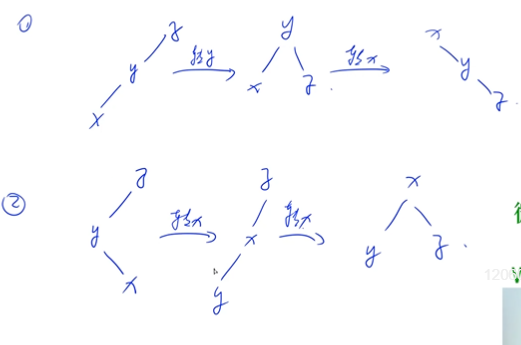 ①
z
y
x
转y
y
x z
转x
x
y
z
②
z
y
x
转x
z
x
y
转x
x
y z